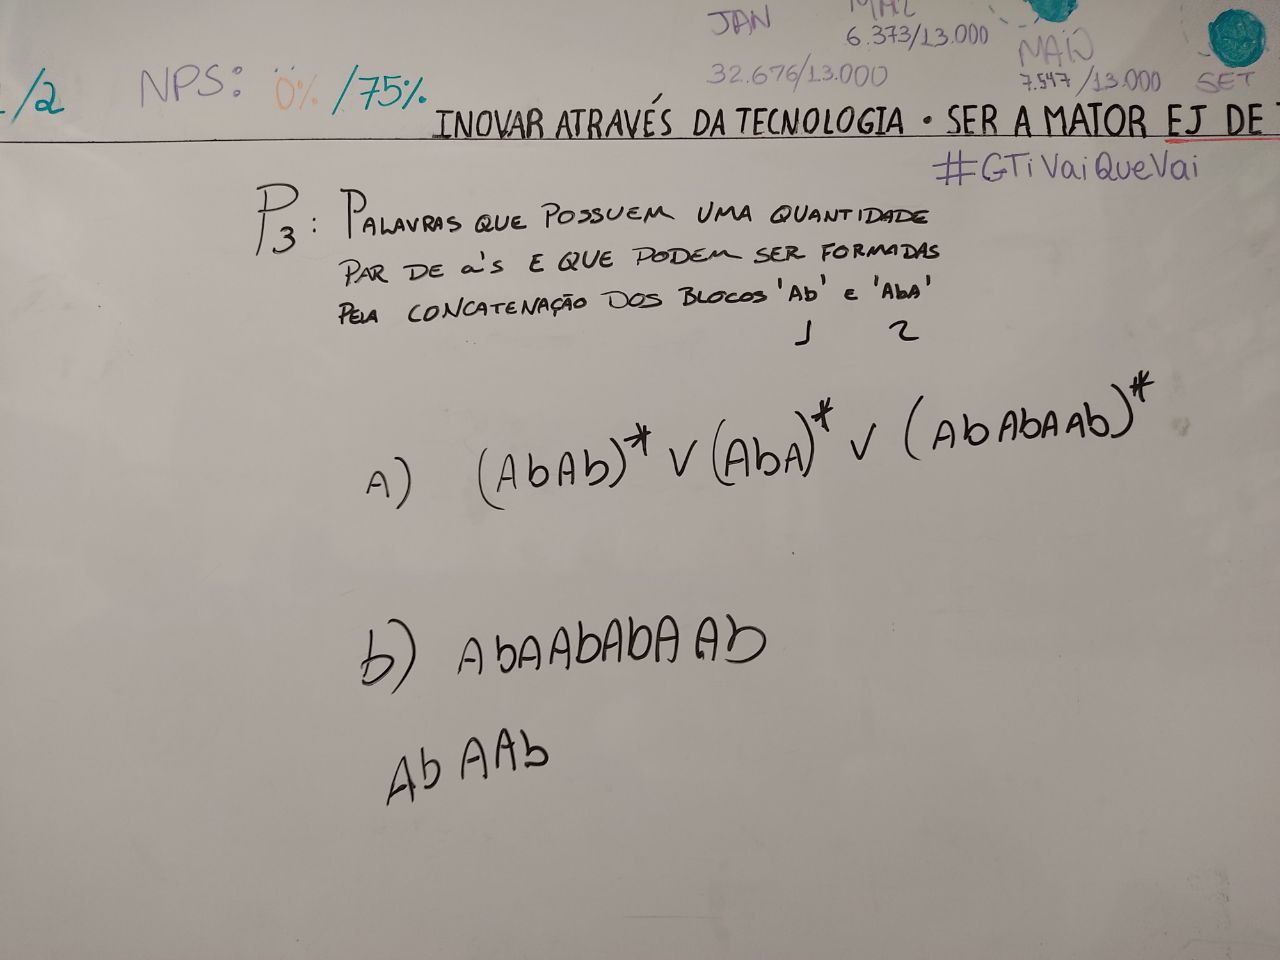 JAN
6.373/13.000
MAIO
32.676/13.000
7.547/13.000
SET
/2
NPS: 0% /75%
INOVAR ATRAVÉS DA TECNOLOGIA • SER A MAIOR EJ DE
#GTiVaiQueVai
P3: PALAVRAS QUE POSSUEM UMA QUANTIDADE
PAR DE a's E QUE PODEM SER FORMADAS
PELA CONCATENAÇÃO DOS BLOCOS 'Ab' E 'AbA'
1 2
A) (AbAb)* V (AbA)* V (AbAbAAb)*
b) AbAAbAbAAb
AbAAb